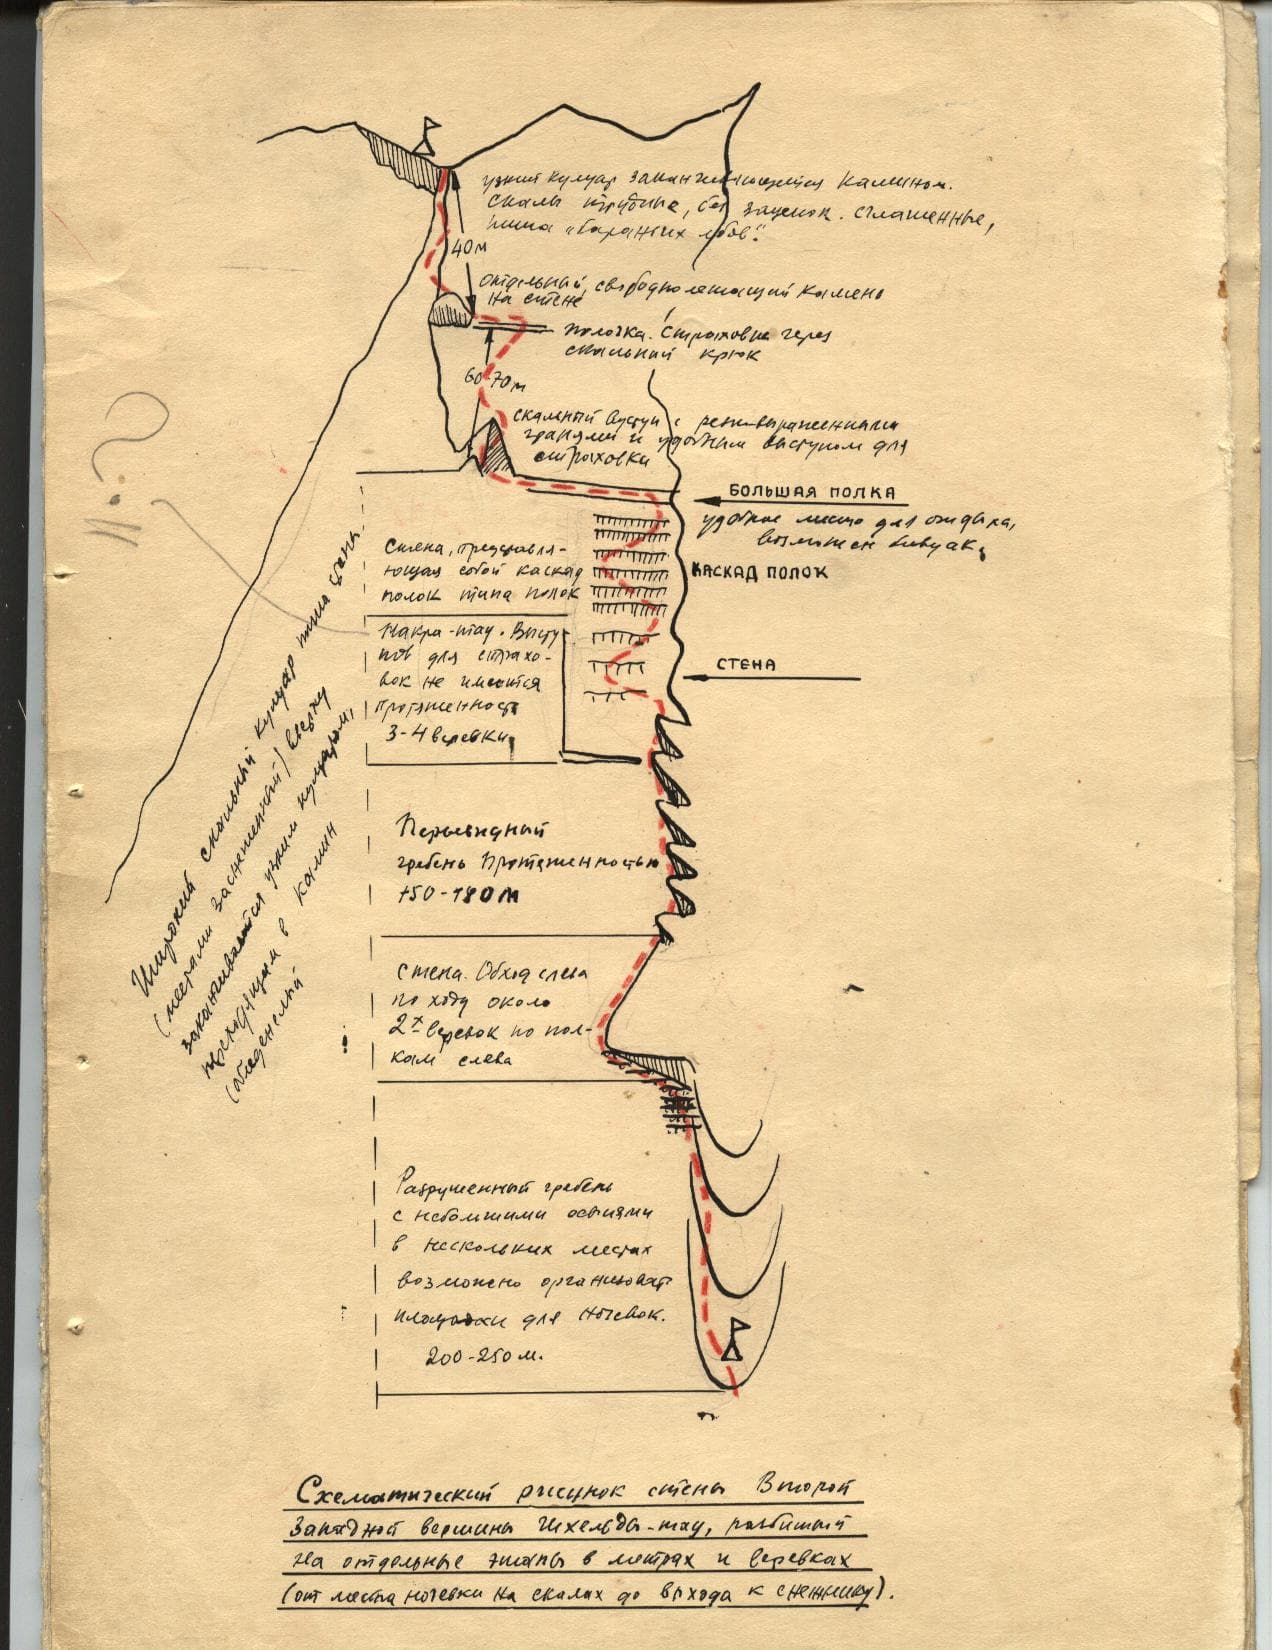 узкий кулуар заканчивающийся камином.
скалы трудные, без зацепок. сглаженные,
типа "бараньих лбов".
40м
отдельный, свободнолежащий камень
на стене
полочка. Страховка через
скальный крюк
60-70м
скальный выступ с резковыраженными
гранями и удобным выступом для
страховки
БОЛЬШАЯ ПОЛКА
удобное место для отдыха,
возможен бивуак.
Стена, представля-
ющая собой каскад
полок типа полок
КАСКАД ПОЛОК
Накра-тау. Высту-
пов для страхо-
вок не имеется
протяженность
3-4 веревки
СТЕНА
Широкий скальный кулуар типа стены
(местами заснеженный) вверху
заканчивается узким кулуаром,
переходящим в камин
(обледенелый
Перьевидный
гребень протяженностью
150-180м
Стена. Обход слева
по ходу около
2х веревок по пол-
кам слева
Разрушенный гребень
с небольшими осыпями
в нескольких местах
возможно организоват
площадки для ночевок.
200-250м.
Схематический рисунок стены Второй
Западной вершины Шхельды-тау, разбитый
на отдельные этапы в метрах и веревках
(от места ночевки на скалах до выхода к снежнику).